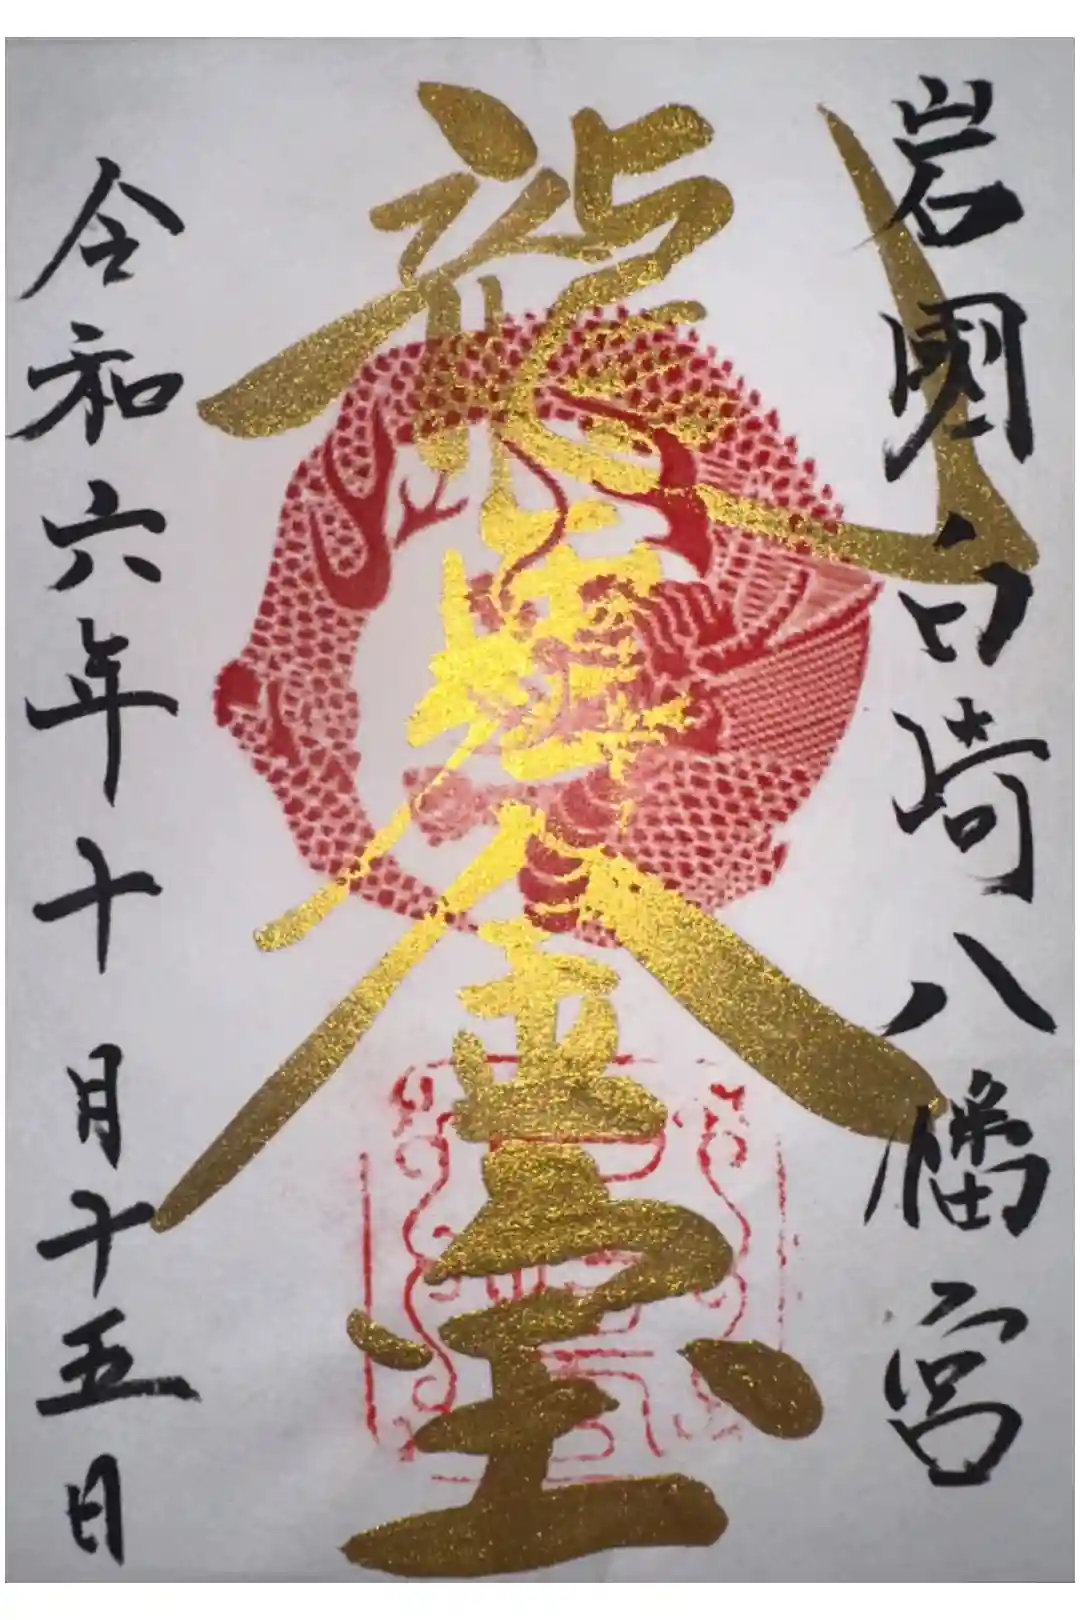 岩國白崎八幡宮
龍 金宝
令和六年十月十五日